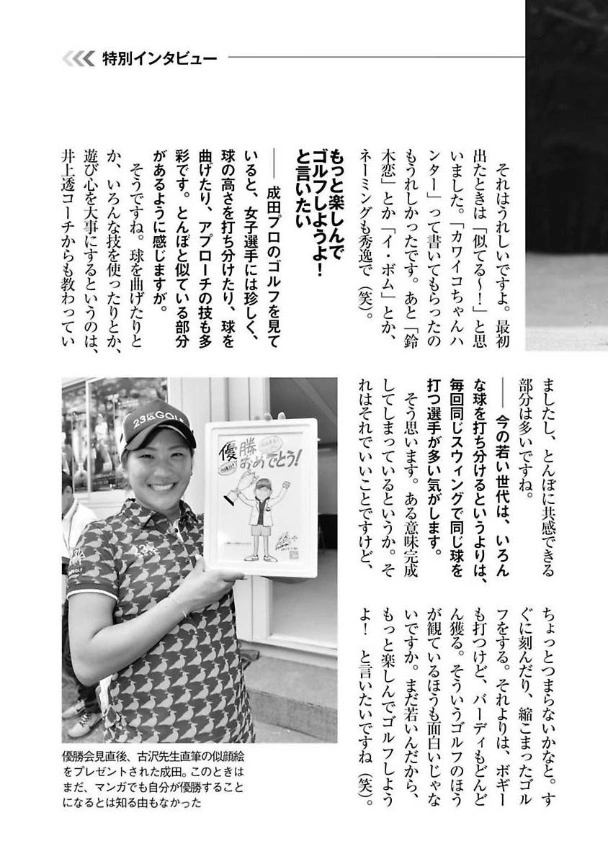 特別インタビュー
それはうれしいですよ。最初
出たときは「似てる〜！」と思
いました。「カワイイコちゃんハ
ンター」って書いてもらったの
もうれしかったです。あと「鈴
木恋」とか「イ・ボム」とか、
ネーミングも秀逸で（笑）。
もっと楽しんで
ゴルフしようよ！
と言いたい
―― 成田プロのゴルフを見て
いると、女子選手には珍しく、
球の高さを打ち分けたり、球を
曲げたり、アプローチの技も多
彩です。とんぼと似ている部分
があるように感じますが。
そうですね。球を曲げたりと
か、いろんな技を使ったりとか、
遊び心を大事にするというのは、
井上透コーチからも教わってい
ましたし、とんぼに共感できる
部分は多いですね。
―― 今の若い世代は、いろん
な球を打ち分けるというよりは、
毎回同じスウィングで同じ球を
打つ選手が多い気がします。
そう思います。ある意味完成
してしまっているというか。そ
れはそれでいいことですけど、
ちょっとつまらないかなと。す
ぐに刻んだり、縮こまったゴル
フをする。それよりは、ボギー
も打つけど、バーディもどんど
ん獲る。そういうゴルフのほう
が観ているほうも面白いじゃな
いですか。まだ若いんだから、
もっと楽しんでゴルフしよう
よ！　と言いたいですね（笑）。
23区GOLF
優勝
おめでとう！
優勝会見直後、古沢先生直筆の似顔絵
をプレゼントされた成田。このときは
まだ、マンガでも自分が優勝すること
になるとは知る由もなかった